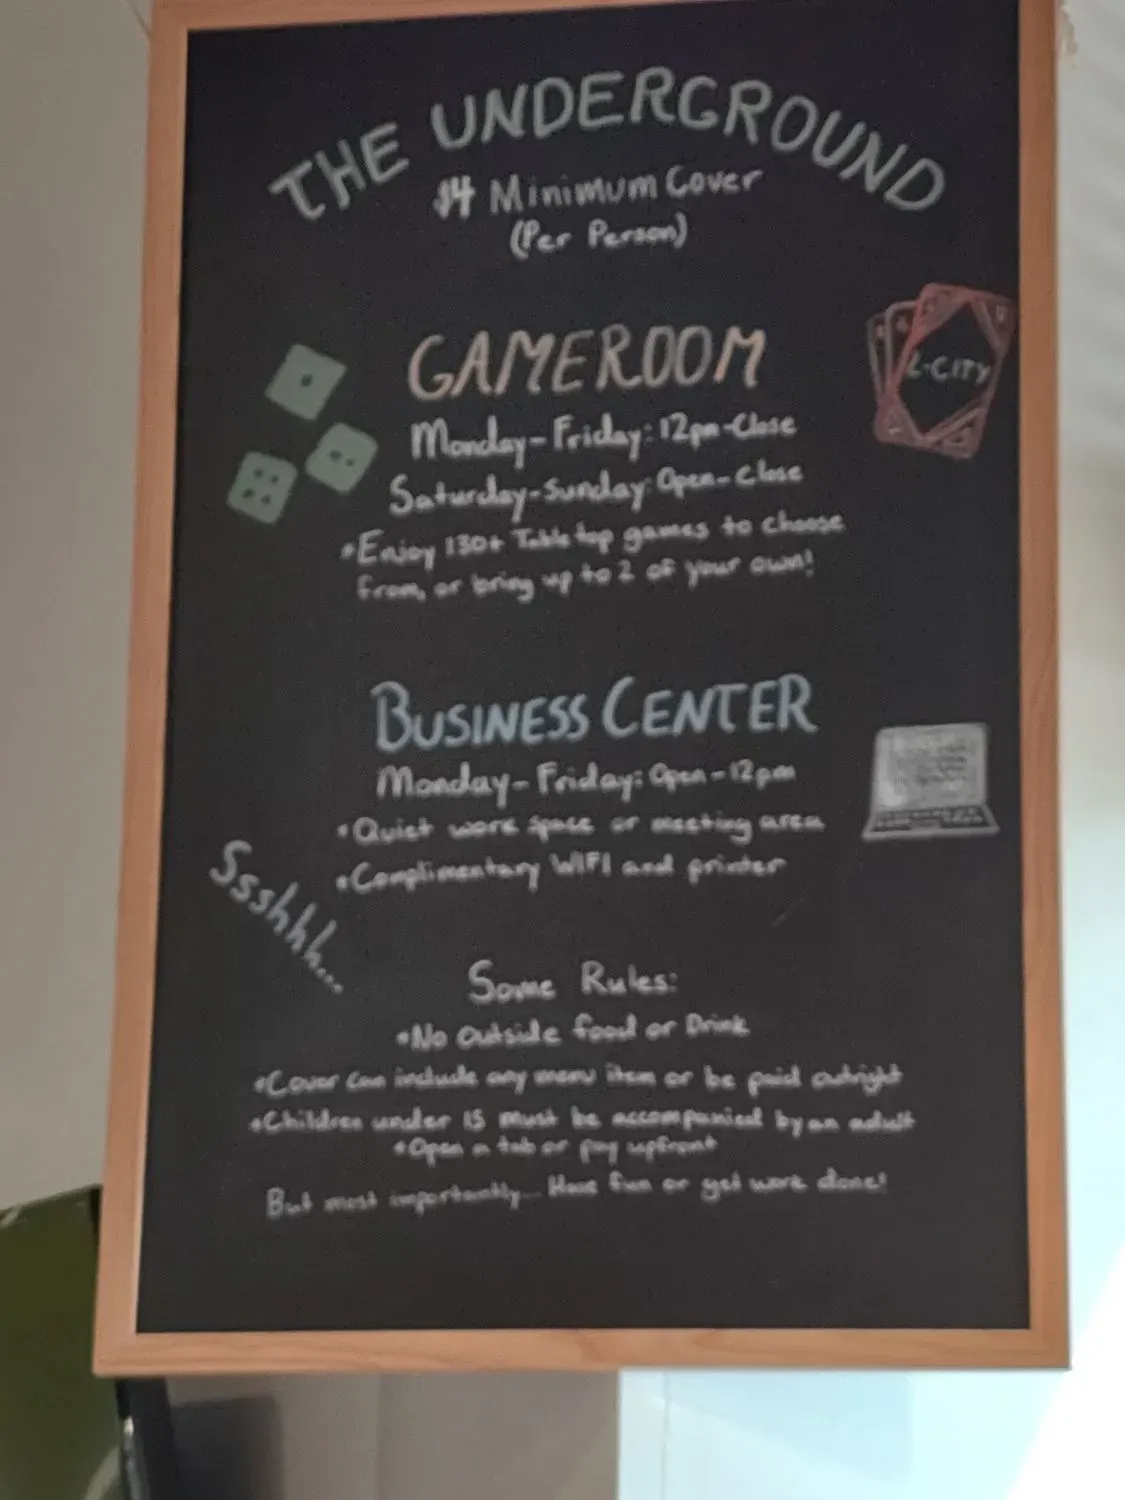 THE UNDERGROUND
$4 Minimum Cover
(Per Person)
GAMEROOM
Monday-Friday: 12pm-Close
Saturday-Sunday: Open-Close
*Enjoy 130+ Table top games to choose
from, or bring up to 2 of your own!
2-CITY
BUSINESS CENTER
Monday-Friday: Open-12pm
*Quiet work space or meeting area
*Complimentary WIFI and printer
Sssshhh...
Some Rules:
*No Outside food or Drink
*Cover can include any menu item or be paid outright
*Children under 15 must be accompanied by an adult
*Open a tab or pay upfront
But most importantly... Have fun or get work done!